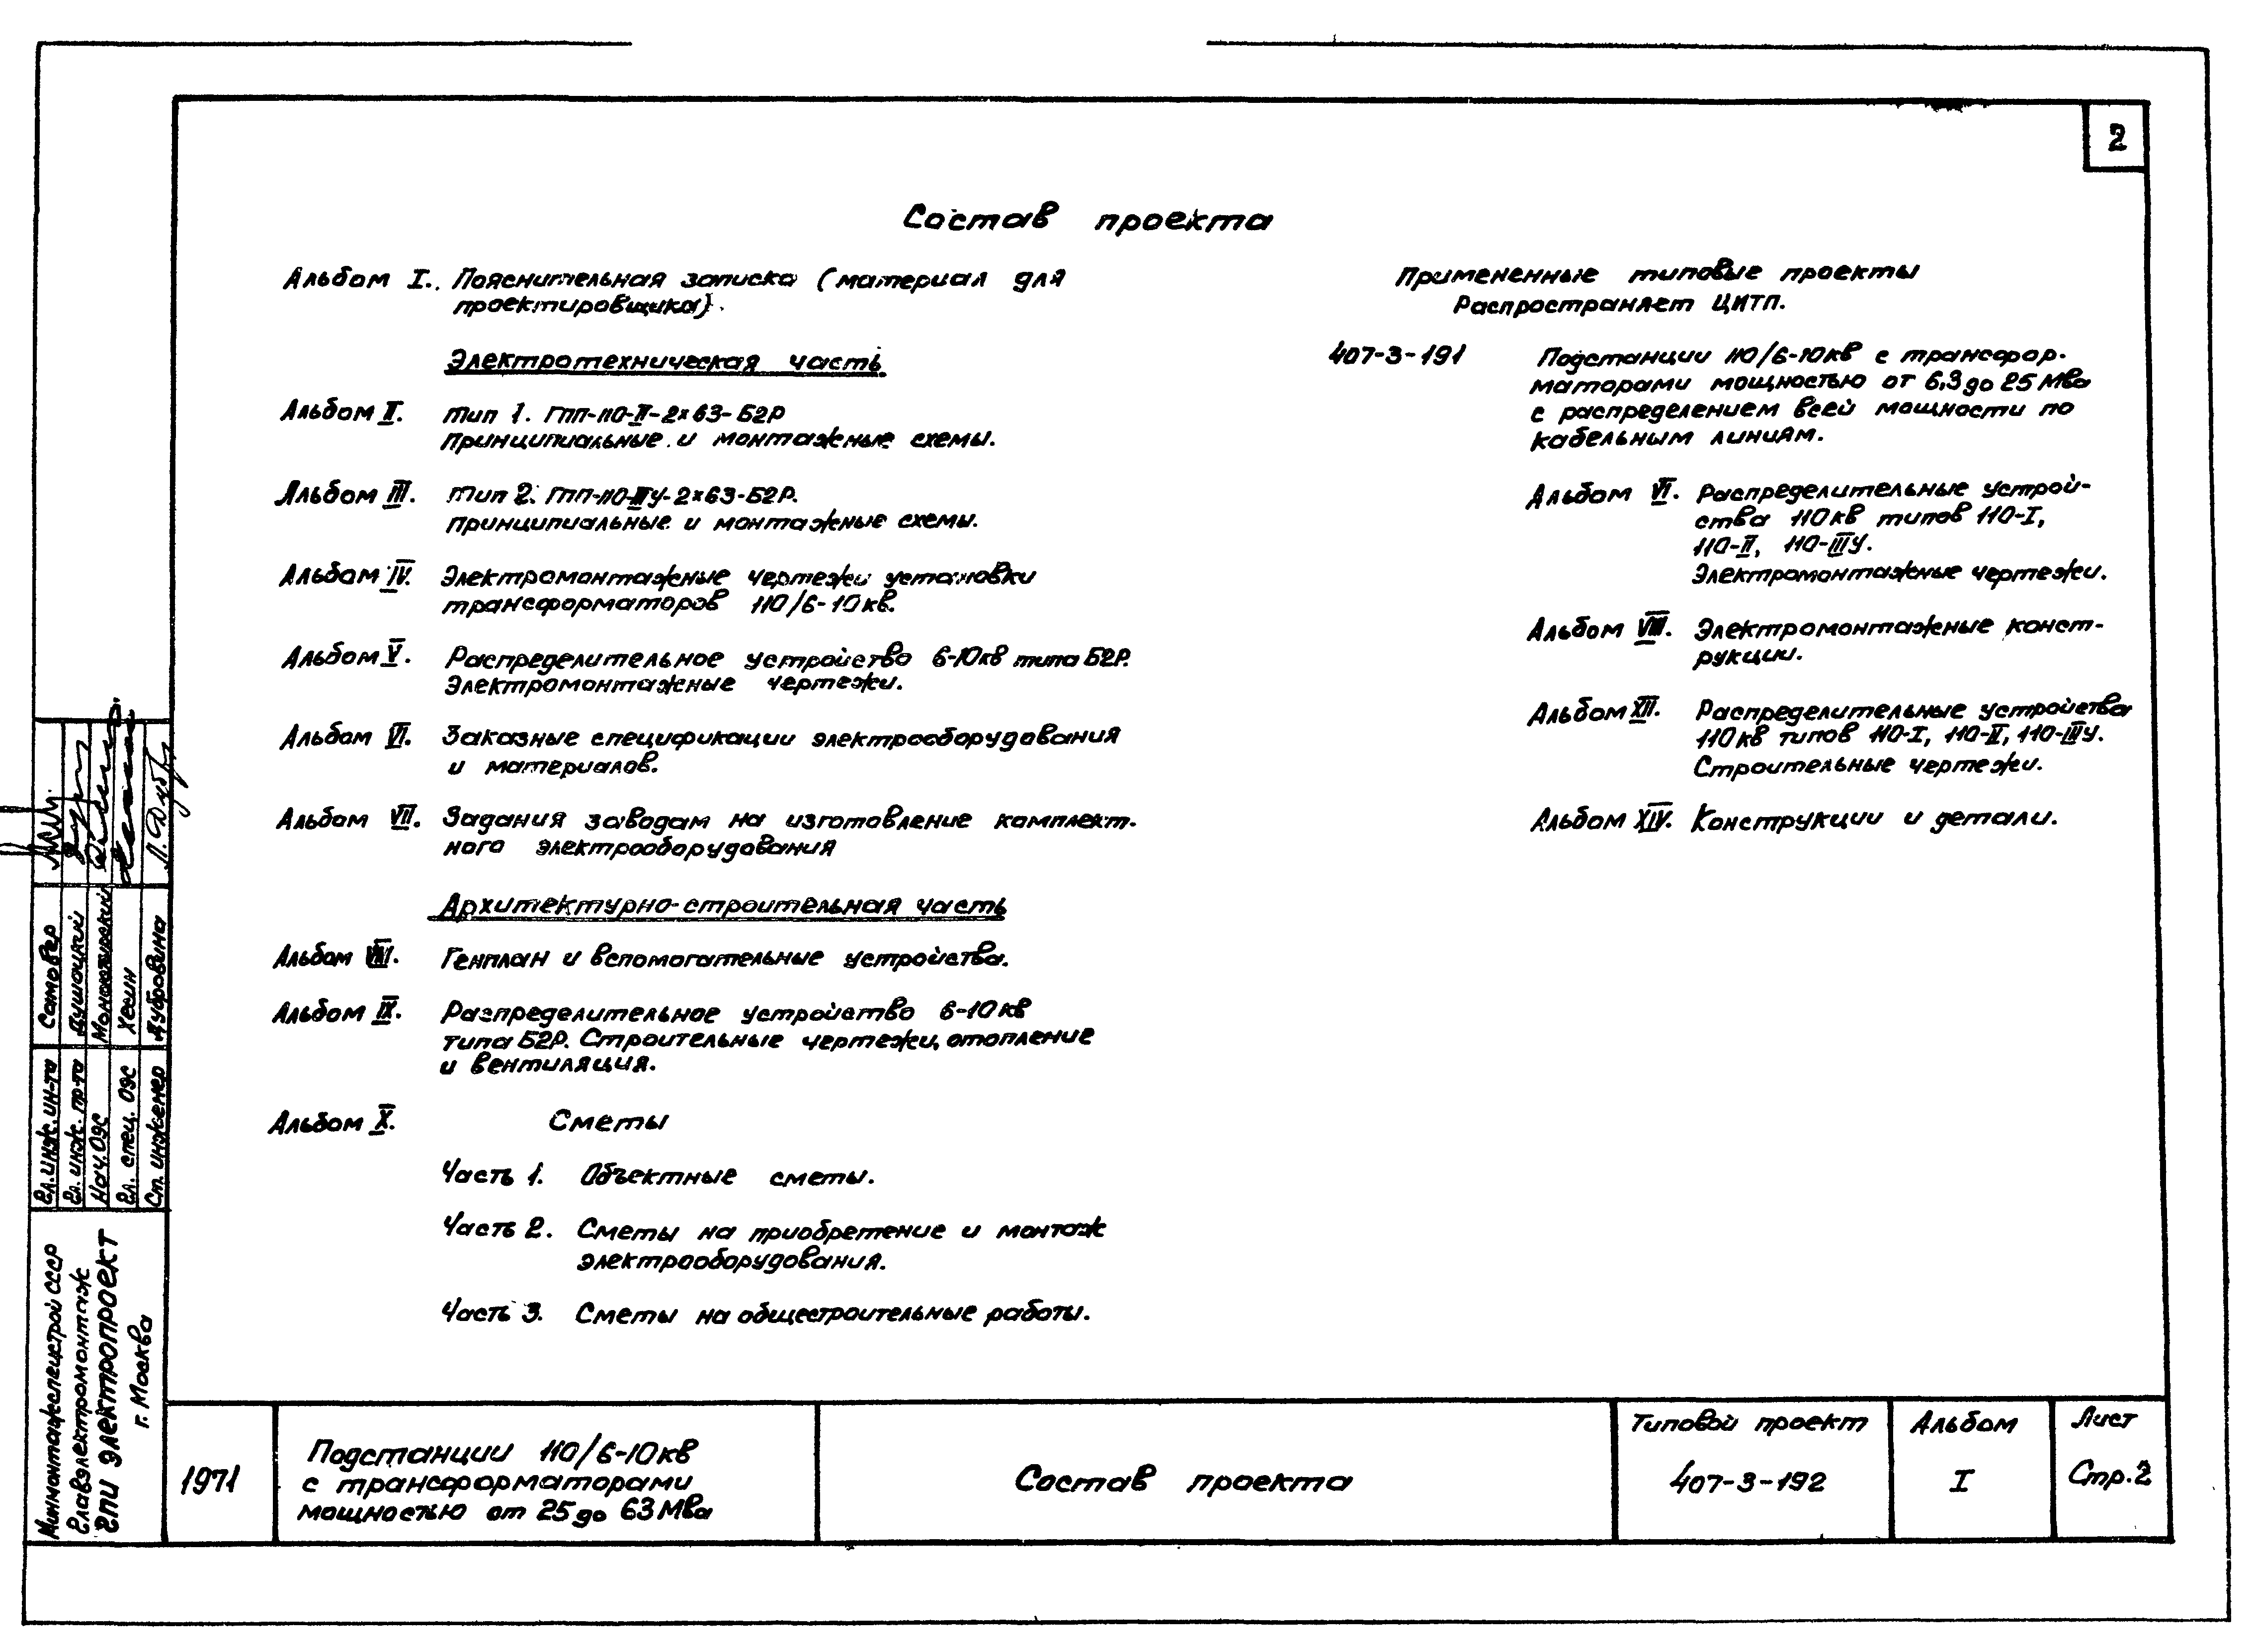 2
Состав проекта
Альбом I. Пояснительная записка (материал для
проектировщика).
Электротехническая часть
Альбом II. Тип 1. ГПП-110-II-2×63-Б2Р
Принципиальные и монтажные схемы.
Альбом III. Тип 2. ГПП-110-IIIУ-2×63-Б2Р.
Принципиальные и монтажные схемы.
Альбом IV. Электромонтажные чертежи установки
трансформаторов 110/6-10кв.
Альбом V. Распределительное устройство 6-10кв типа Б2Р.
Электромонтажные чертежи.
Альбом VI. Заказные спецификации электрооборудования
и материалов.
Альбом VII. Задания заводам на изготовление комплект-
ного электрооборудования
Архитектурно-строительная часть
Альбом VIII. Генплан и вспомогательные устройства.
Альбом IX. Распределительное устройство 6-10кв
типа Б2Р. Строительные чертежи, отопление
и вентиляция.
Альбом X. Сметы
Часть 1. Объектные сметы.
Часть 2. Сметы на приобретение и монтаж
электрооборудования.
Часть 3. Сметы на общестроительные работы.
Примененные типовые проекты
Распространяет ЦИТП.
407-3-191 Подстанции 110/6-10кв с трансфор-
маторами мощностью от 6,3 до 25 Мва
с распределением всей мощности по
кабельным линиям.
Альбом VI. Распределительные устрой-
ства 110кв типов 110-I,
110-II, 110-IIIУ.
Электромонтажные чертежи.
Альбом VIII. Электромонтажные конст-
рукции.
Альбом XII. Распределительные устройства
110кв типов 110-I, 110-II, 110-IIIУ.
Строительные чертежи.
Альбом XIV. Конструкции и детали.
Гл. инж. ин-та Самовер
Гл. инж. пр-та Душацкий
Нач. ОЭС
Гл. спец. ОЭС Хесин
Ст. инженер Дубровина
Минмонтажспецстрой СССР
Главэлектромонтаж
ГПИ Электропроект
г. Москва
1971
Подстанции 110/6-10кв
с трансформаторами
мощностью от 25 до 63 Мва
Состав проекта
Типовой проект
407-3-192
Альбом
I
Лист
Стр.2